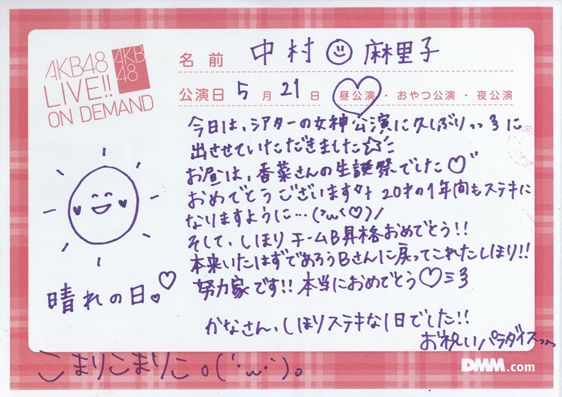 AKB48
LIVE!!
ON DEMAND
AKB
48
名前 中村 麻里子
公演日 5月21日 昼公演・おやつ公演・夜公演
今日は、シアターの女神公演に久しぶりっっろに
出させていただきました☆彡
お昼は、香菜さんの生誕祭でした♡
おめでとうございます 20才の1年間もステキに
なりますように…(?ω<♡)ノ
そして、しほり チームB昇格おめでとう!!
本来いたはずであろうBさんに戻ってこれたしほり!!
努力家です!! 本当におめでとう♡=3
かなさん、しほりステキな1日でした!!
お祝いパラダイスっっ
晴れの日。♡
こまりこまりこ。(´･ω･`)。
DMM.com